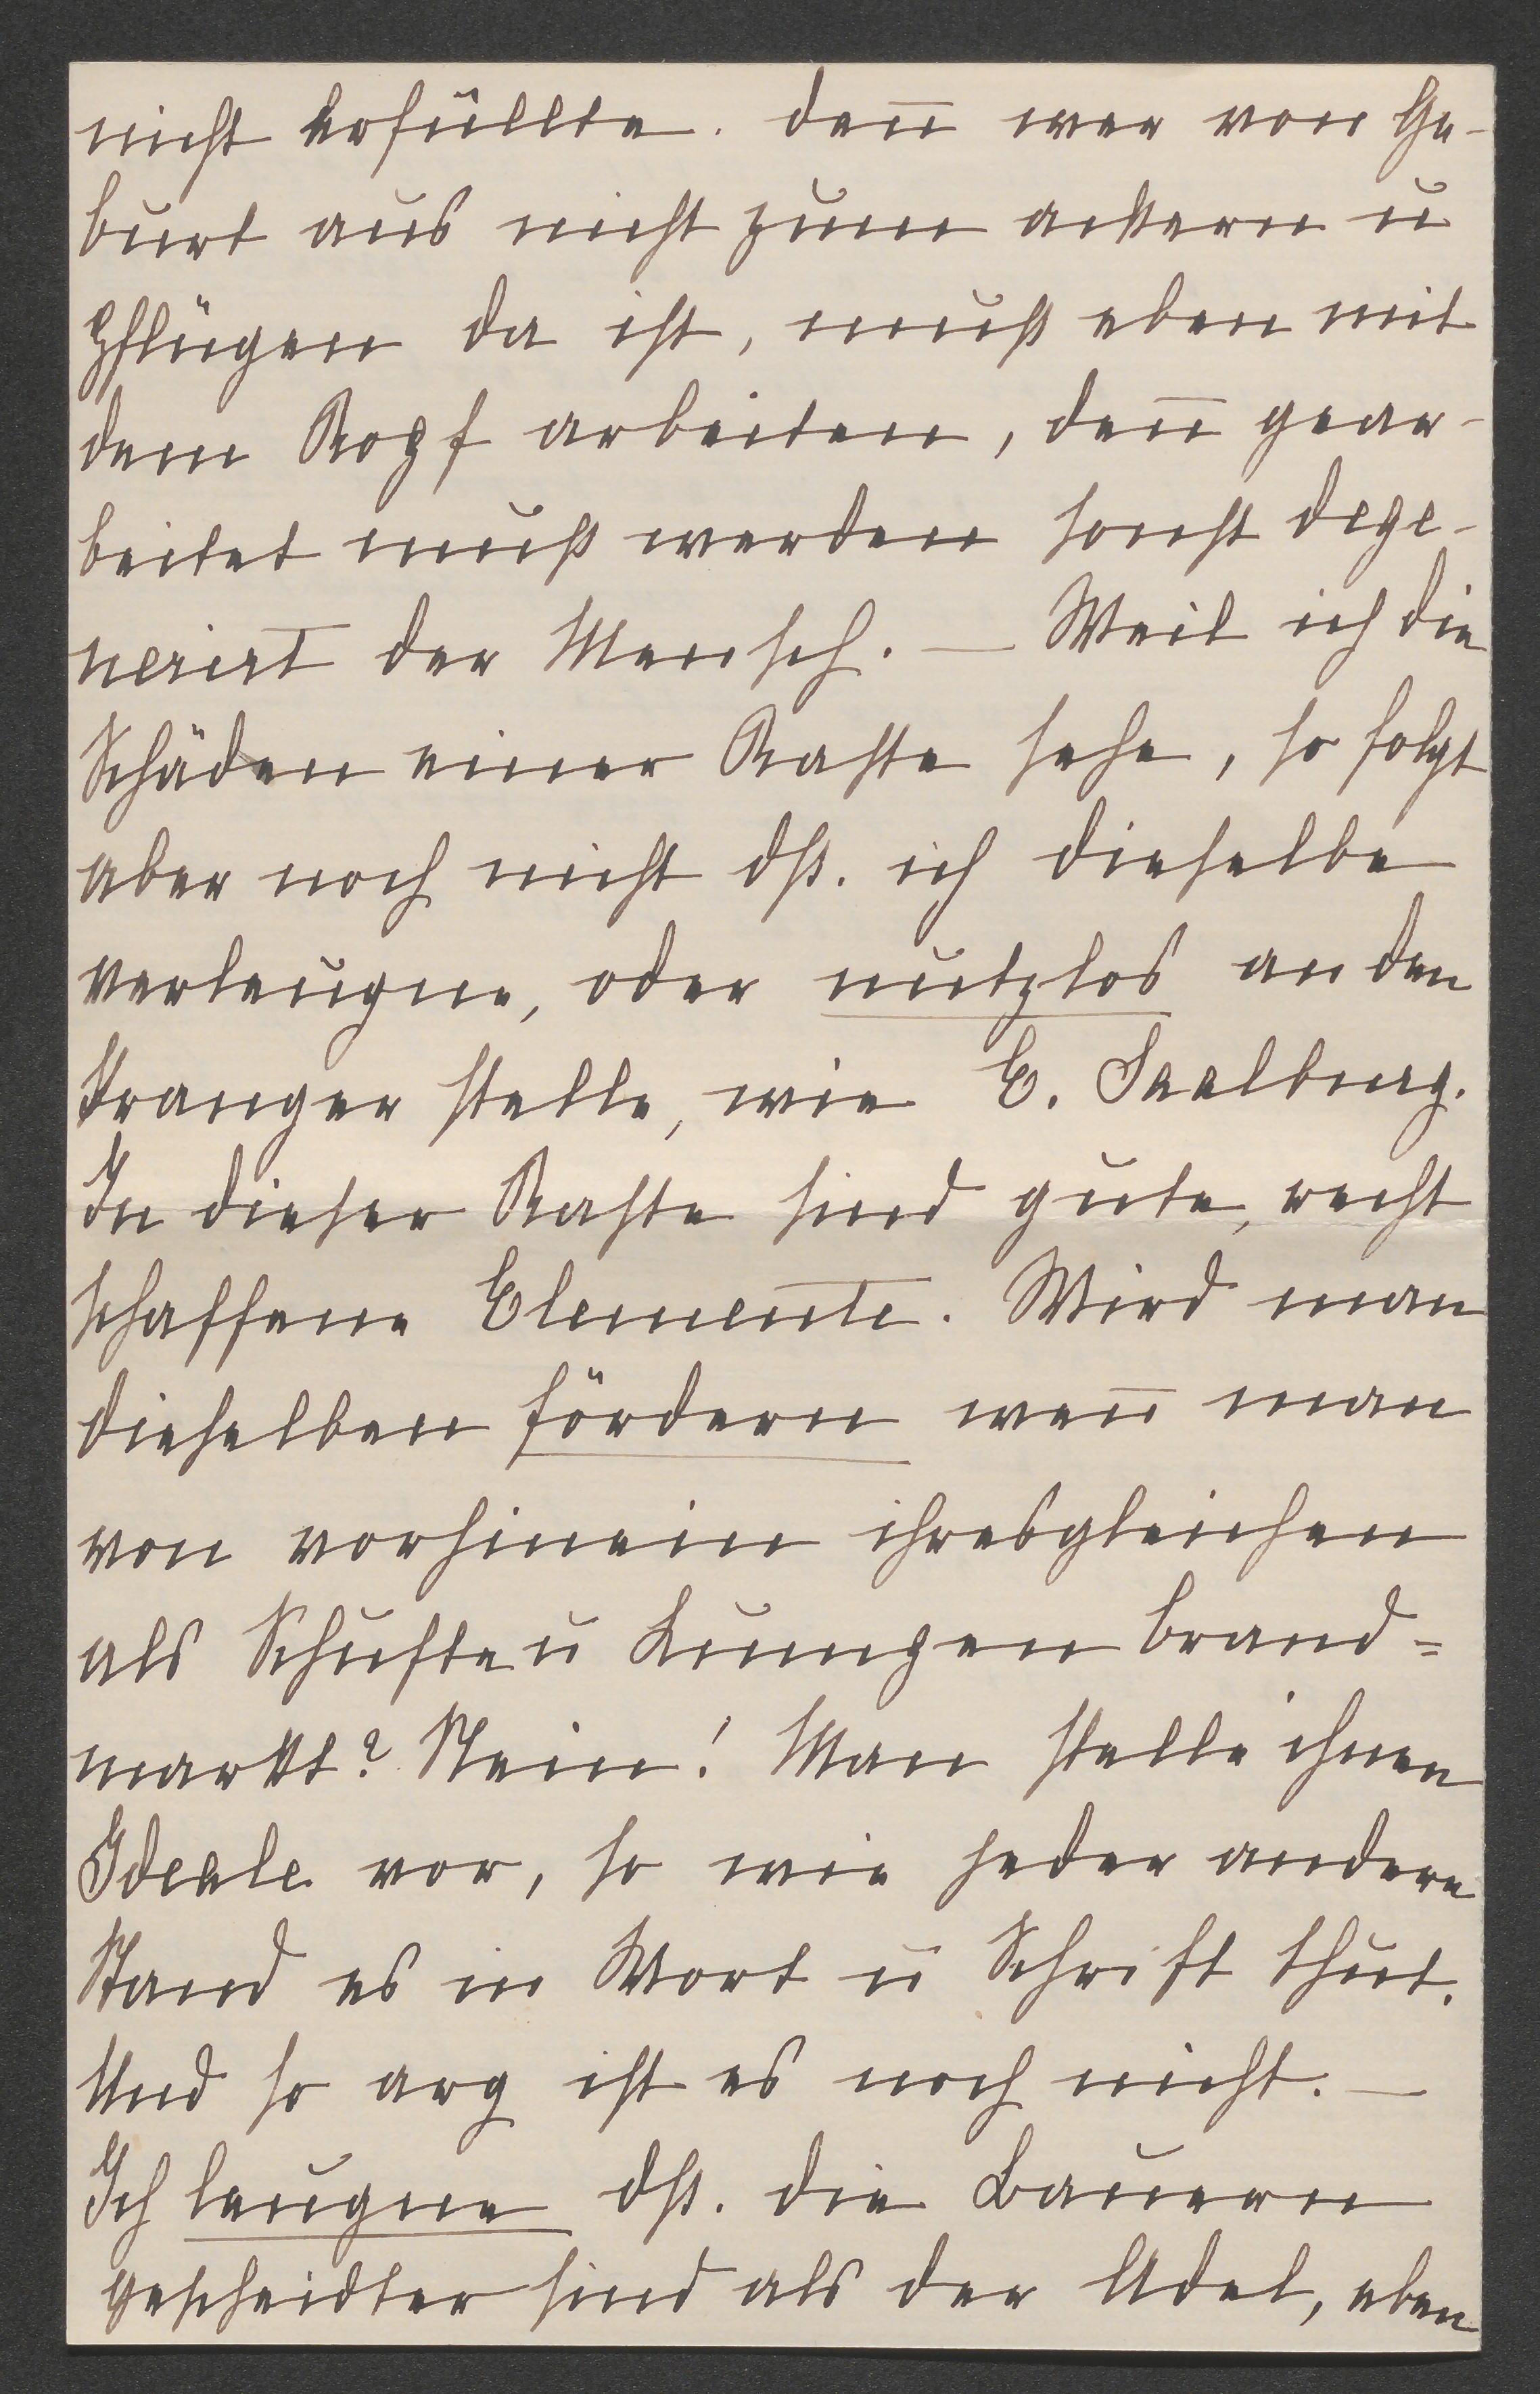 nicht erfüllte. denn wer von Ge-
burt aus nicht zum ackern u
pflügen da ist, muß eben mit
dem Kopf arbeiten, denn gear-
beitet muß werden sonst dege-
nerirt der Mensch. — Weil ich die
Schäden einer Kaste sehe, so folgt
aber noch nicht dß. ich dieselbe
verleugne, oder nutzlos an den
Pranger stelle, wie E. Saalburg.
In dieser Kaste sind gute, recht
schaffene Elemente. Wird man
dieselben fördern wenn man
von vorhinein ihresgleichen
als Schufte u Lumpen brand=
markt? Nein! Man stelle ihnen
Ideale vor, so wie jeder andere
Stand es in Wort u Schrift thut.
Und so arg ist es noch nicht. —
Ich leugne dß. die Bauern
gescheidter sind als der Adel, eben